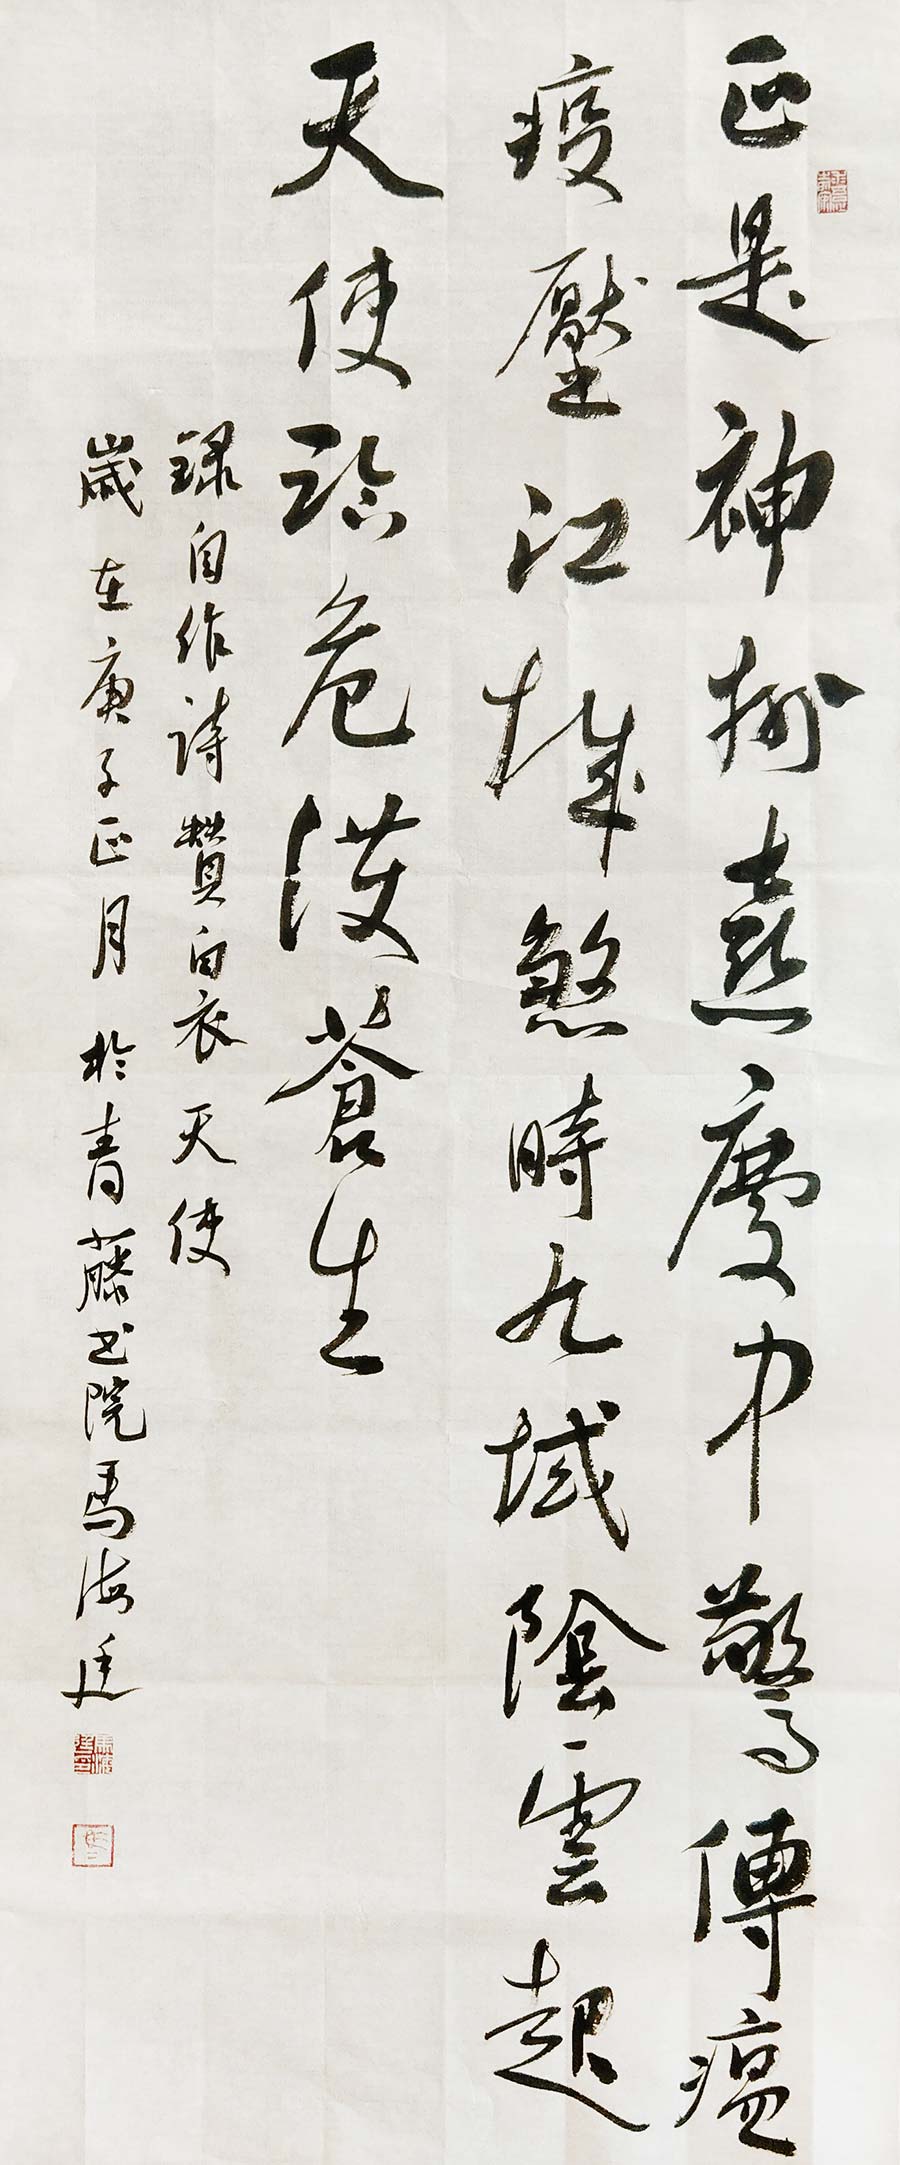 正是神州憙慶中驚傳瘟
疫壓江城煞時九域陰雲起
天使臨危護蒼生
録自作詩贊白衣天使
歲在庚子正月於青藤书院馬海廷